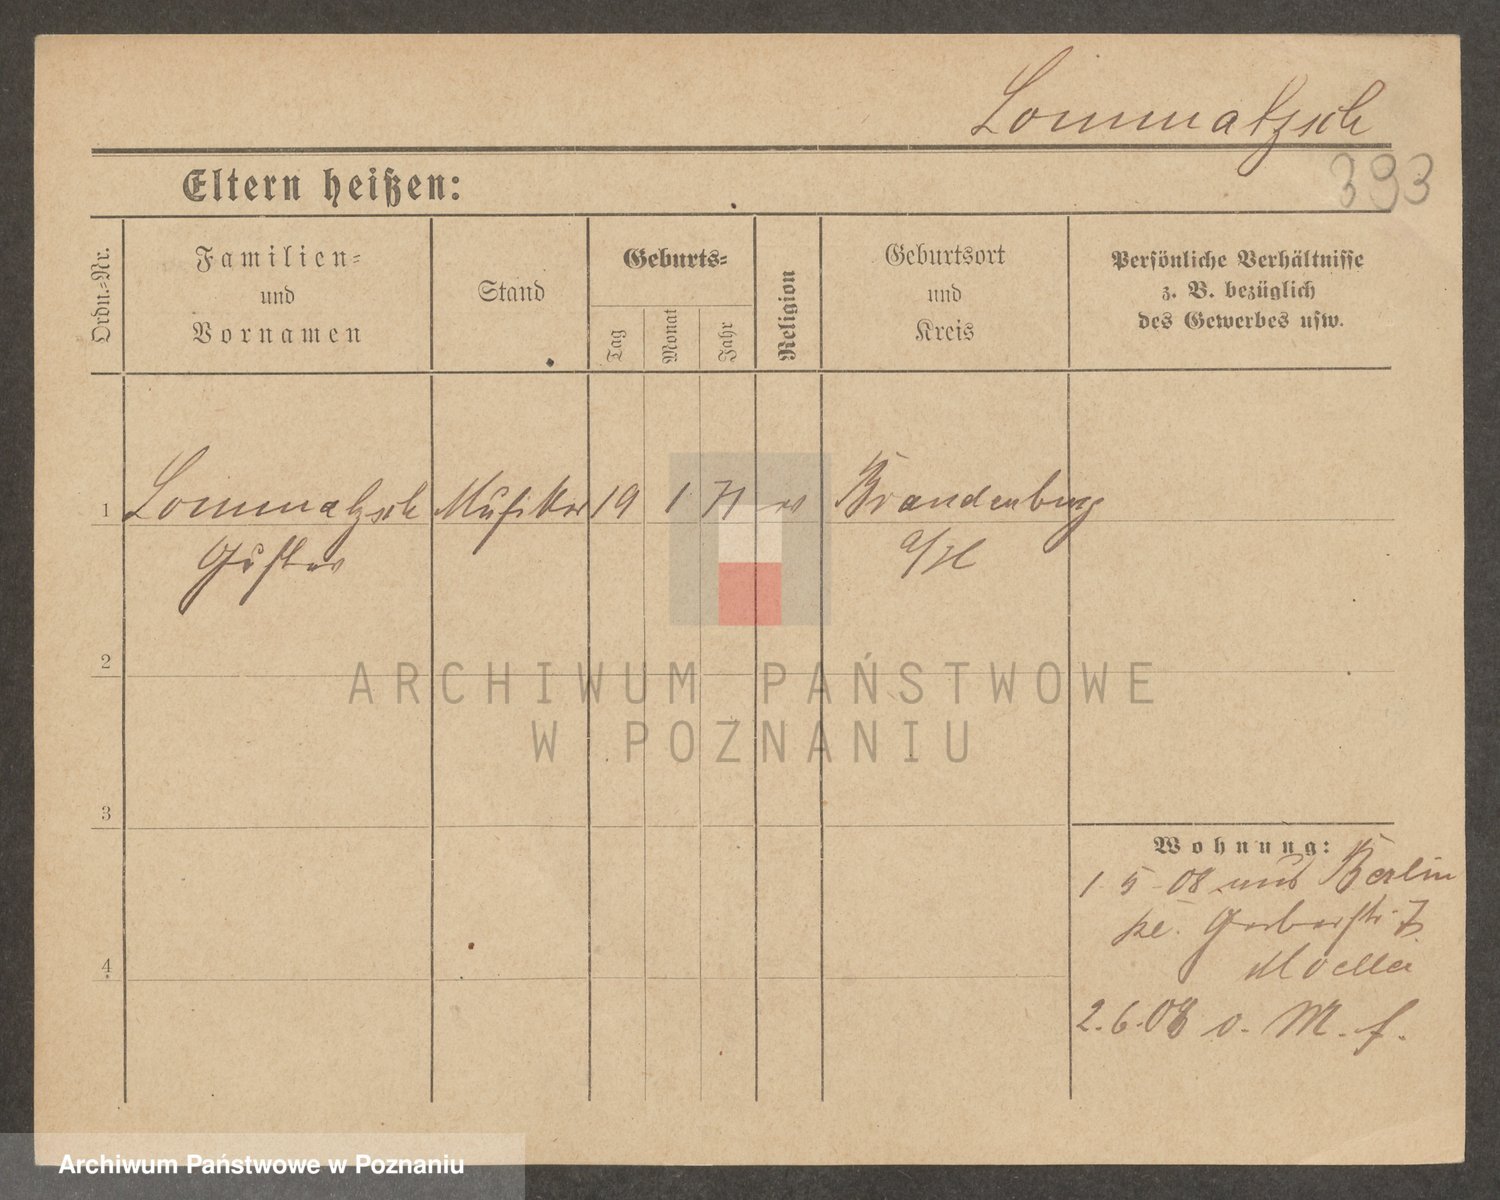 Lommatzsch
393
Eltern heißen:
Ordn.-Nr.
Familien-
und
Vornamen
Stand
Geburts-
Tag
Monat
Jahr
Religion
Geburtsort
und
Kreis
Persönliche Verhältnisse
z. B. bezüglich
des Gewerbes usw.
1 Lommatzsch Musiker 19 1 71 ev Brandenburg
Gustav a/H
2
3
4
Wohnung:
1 5 08 aus Berlin
Gerberstr. 7
Moeller
2.6.08 o. M. f.
ARCHIWUM PAŃSTWOWE
W POZNANIU
Archiwum Państwowe w Poznaniu